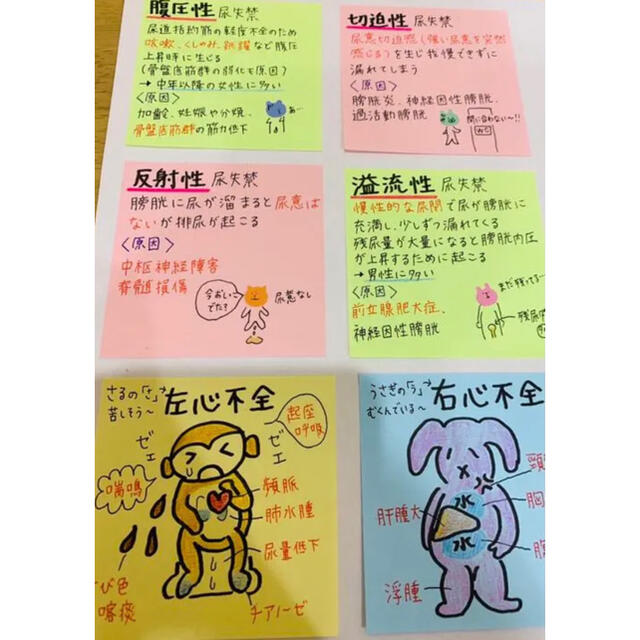 腹圧性 尿失禁
尿道括約筋の軽度不全のため
咳嗽、くしゃみ、跳躍など腹圧
上昇時に生じる
(骨盤底筋群の弱化も原因)
→中年以降の女性に多い
<原因>
加齢、妊娠や分娩、
骨盤底筋群の筋力低下
あ…
切迫性 尿失禁
尿意切迫感(強い尿意を突然
感じる)を生じ我慢できずに
漏れてしまう
<原因>
膀胱炎、神経因性膀胱、
過活動膀胱
間に合わない〜!!
WC
反射性 尿失禁
膀胱に尿が溜まると尿意は
ないが排尿が起こる
<原因>
中枢神経障害
脊髄損傷
今おしっこ
でた?
尿意なし
溢流性 尿失禁
慢性的な尿閉で尿が膀胱に
充満し、少しずつ漏れてくる
残尿量が大量になると膀胱内圧
が上昇するために起こる
→男性に多い
<原因>
前立腺肥大症、
神経因性膀胱
まだ残ってる…
残尿
さるの「さ」→
苦しそう〜
左心不全
起座
呼吸
ゼェ
ゼェ
喘鳴
頻脈
肺水腫
尿量低下
チアノーゼ
び色
喀痰
うさぎの「う」→
むくんでいる〜
右心不全
頸
水
胸
肝腫大
水
腹
浮腫